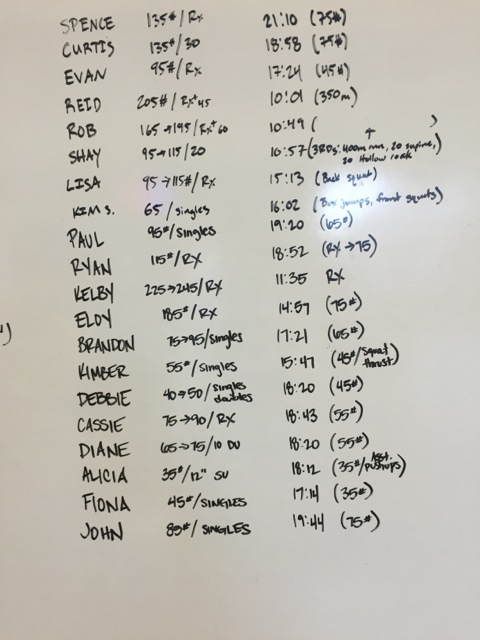 SPENCE 135#/Rx 21:10 (75#)
CURTIS 135#/30 18:58 (75#)
EVAN 95#/Rx 17:24 (45#)
REID 205#/Rx+45 10:01 (350m)
ROB 165→195/Rx+60 10:49 ( )
SHAY 95→115/20 16:57 (3RDS: 400m run, 20 supine, 20 Hollow rock
LISA 95→115#/Rx 15:13 (Back squat)
KIM S. 65/singles 16:02 (Box jumps, front squats)
PAUL 95#/Singles 19:20 (65#)
RYAN 115#/RX 18:52 (RX→75)
KELBY 225→245/RX 11:35 RX
ELOY 185#/RX 14:57 (75#)
BRANDON 75→95/Singles 17:21 (65#)
KIMBER 55#/Singles 15:47 (45#/Squat thrust)
DEBBIE 40→50/Singles doubles 18:20 (45#)
CASSIE 75→90/RX 18:43 (55#)
DIANE 65→75/10 DU 18:20 (55#)
ALICIA 35#/12" SU 18:12 (35#/Asst. pushups)
FIONA 45#/SINGLES 17:14 (35#)
JOHN 85#/SINGLES 19:44 (75#)